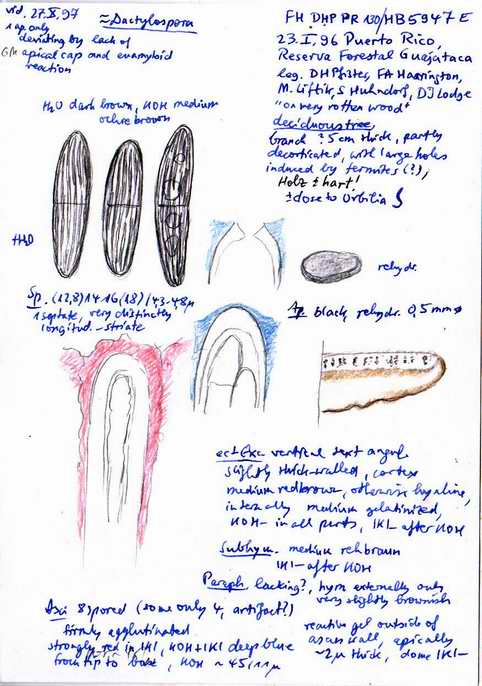 vid. 27.X.97
≈ Dactylospora
1 ap. only
deviating by lack of
apical cap and euamyloid
reaction
FH DHP PR 130/HB5947E
23.I.96 Puerto Rico,
Reserva Forestal Guajataca
leg. DH Pfister, FA Harrington,
M. Liftik, S Huhndorf, DJ Lodge
"on very rotten wood"
deciduous tree,
branch ?5cm thick, partly
decorticated, with large holes
induced by termites (?),
Holz ± hart!
± close to Orbilia
H2O dark brown, KOH medium
ochre brown
H2O
rehydr.
Sp. (12,8)14-16(18)/43-48µ
1septate, very distinctly
longitud.-striate
Ap black rehydr. 0,5mm ø
ect Exc vertical text angul.
slightly thick-walled, cortex
medium redbrown, otherwise hyaline,
internally medium gelatinized,
KOH- in all parts, IKI- after KOH
Subhym. medium rehbraun
IKI- after KOH
Paraph lacking?, hym externally only
very slightly brownish
Asci 8spored (some only 4, artifact?)
firmly agglutinated
strongly red in IKI, KOH+IKI deep blue
from tip to base, KOH ~ 45/11µ
reactive gel outside of
ascus wall, apically
~2µ thick, dome IKI-